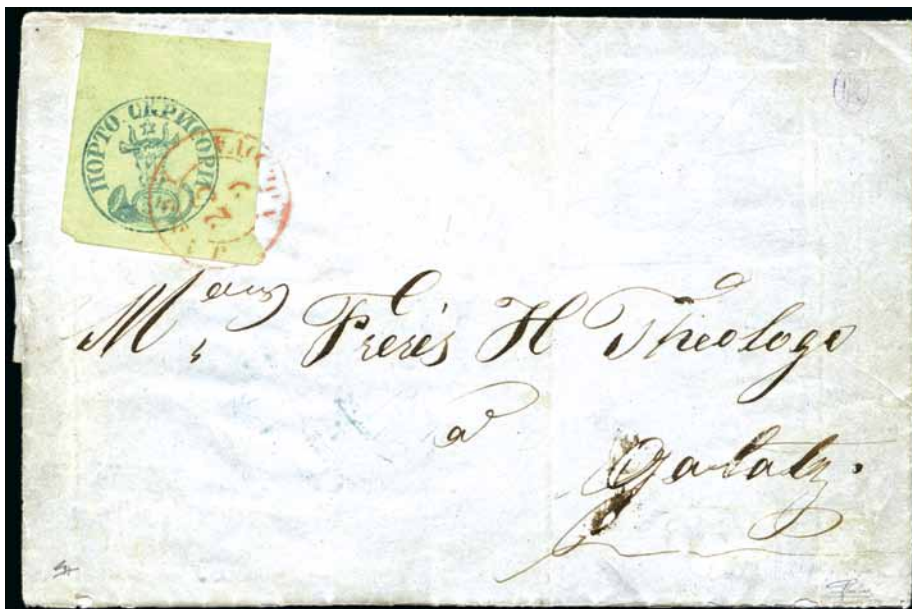 ПОРТО СКРИСОРИ
Messrs Frerés H Theologo
a
Galatz.